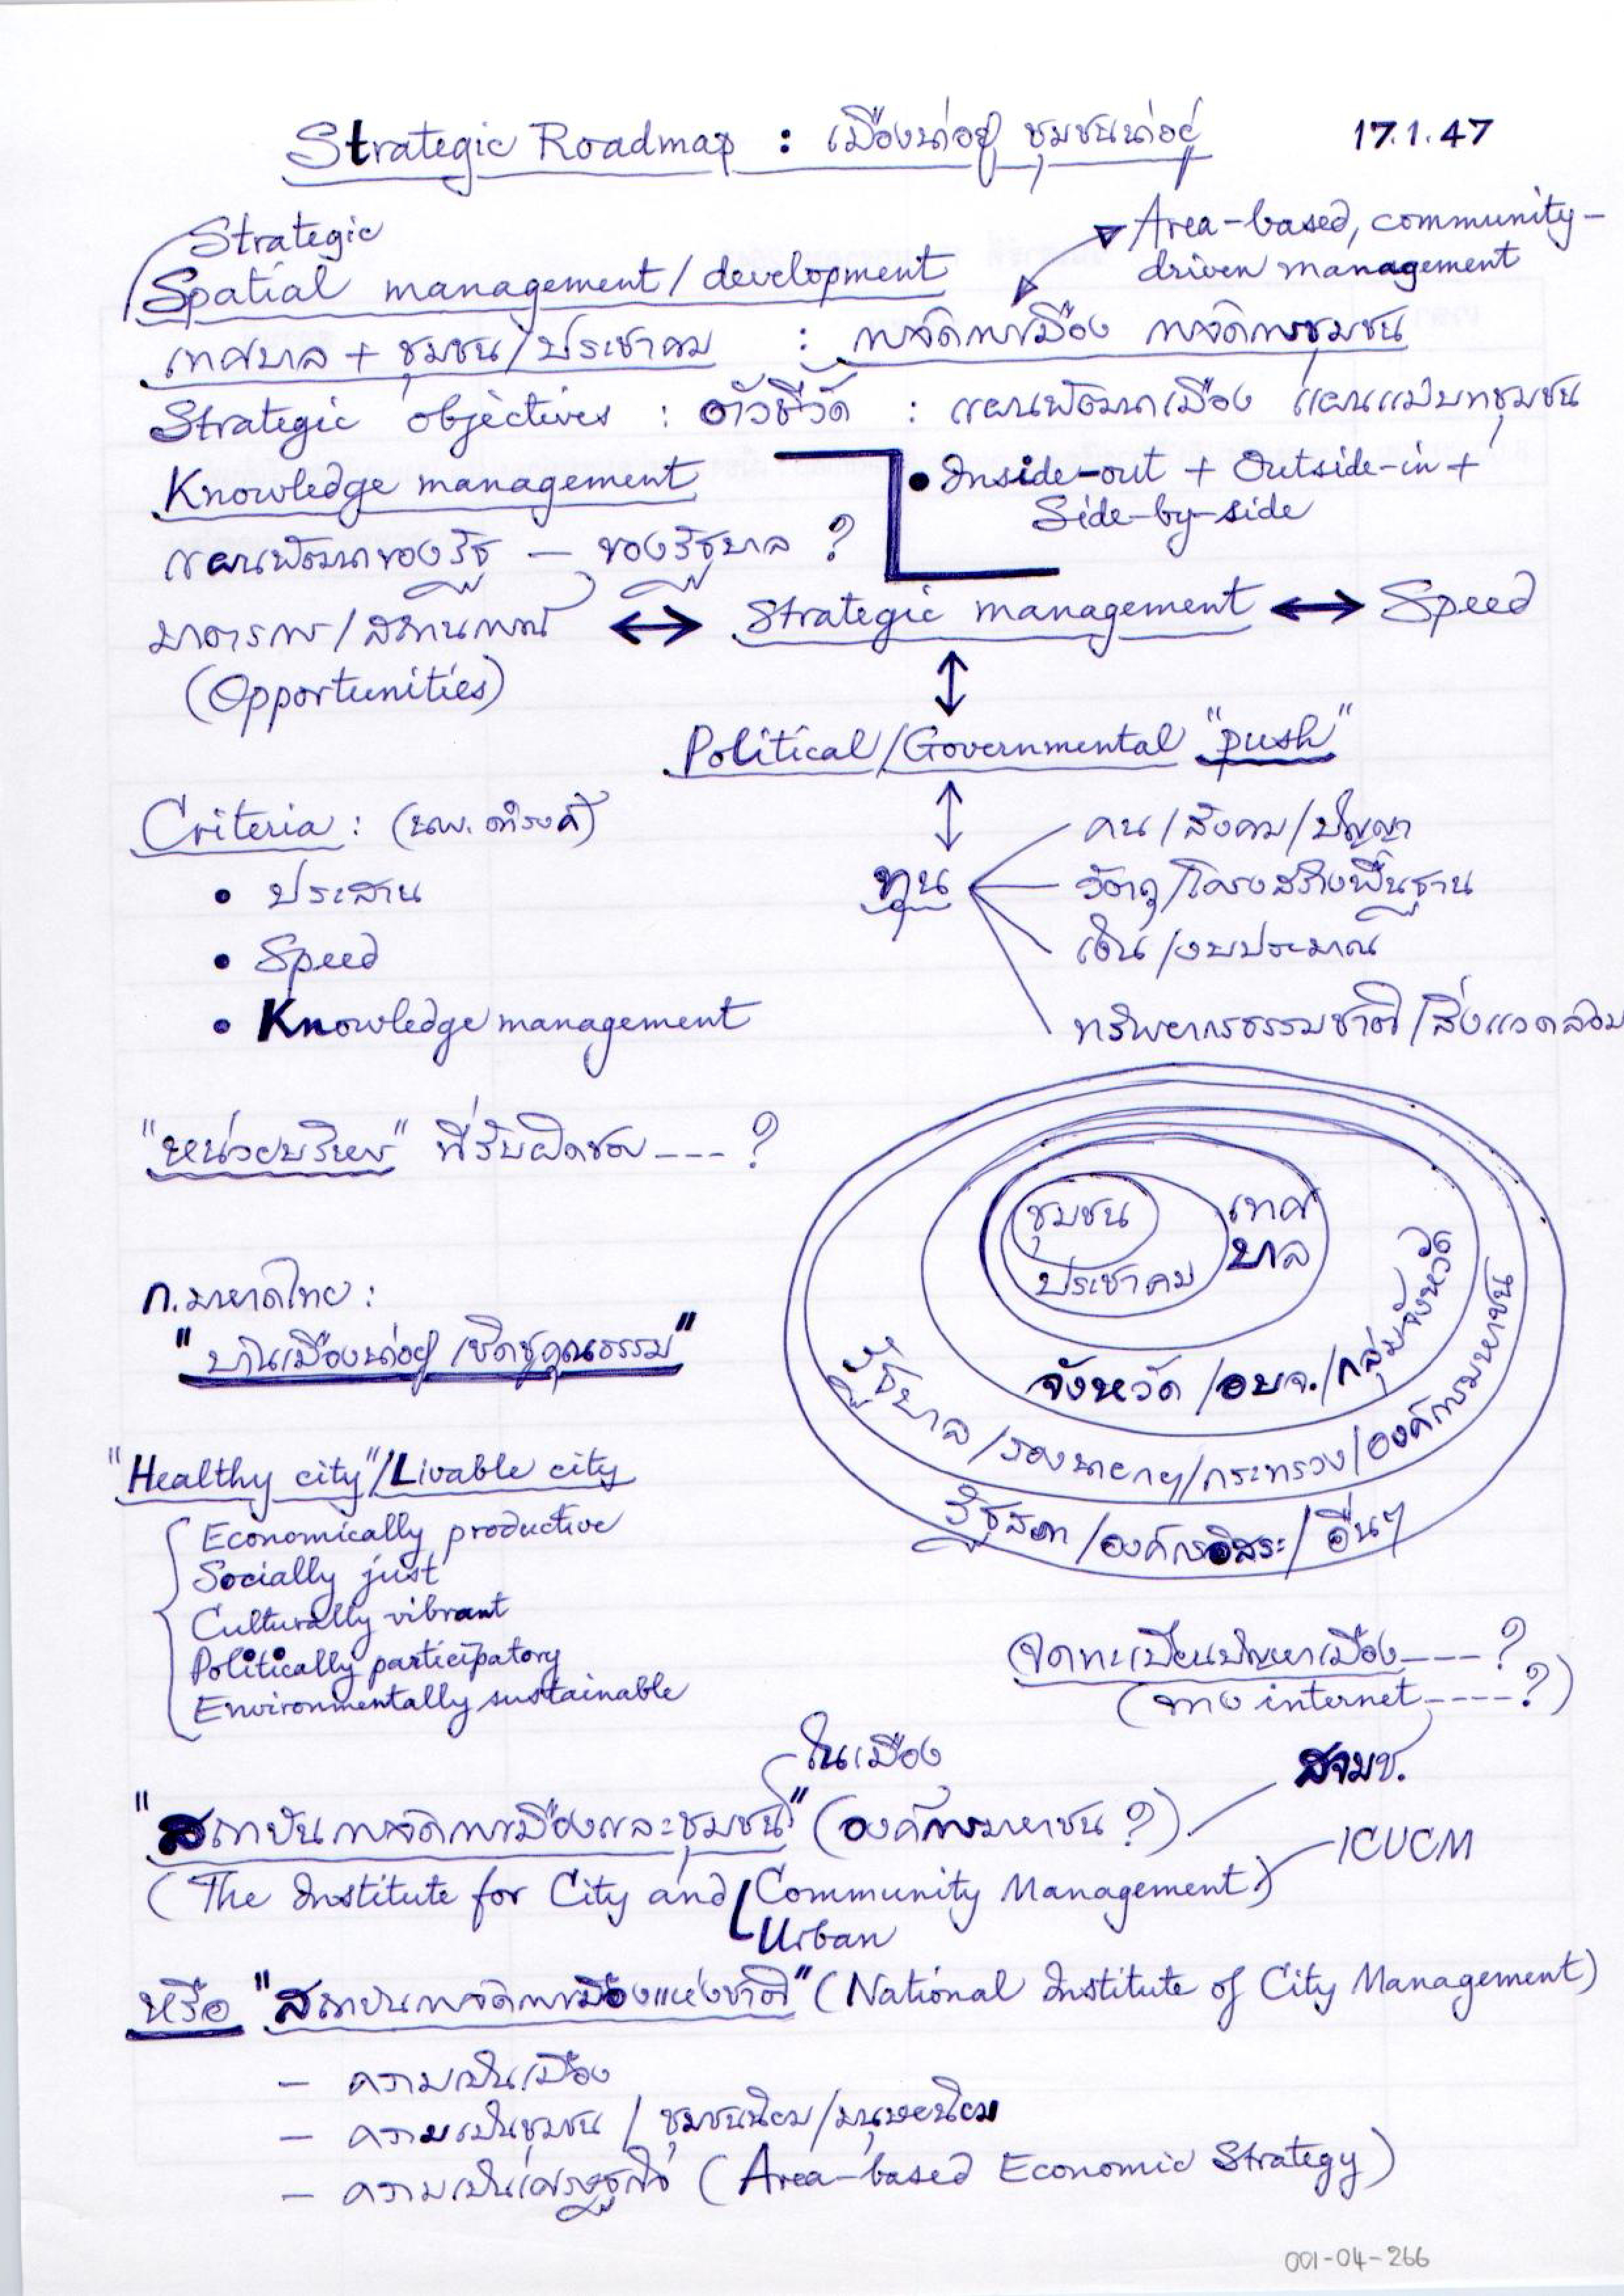 Strategic Roadmap : เมืองน่าอยู่ ชุมชนน่าอยู่
17.1.47
Strategic
Spatial management/development
Area-based, community-
driven management
เทศบาล + ชุมชน/ประชาคม : การจัดการเมือง การจัดการชุมชน
Strategic objectives : ตัวชี้วัด : แผนพัฒนาเมือง แผนแม่บทชุมชน
Knowledge management
• Inside-out + Outside-in +
Side-by-side
แผนพัฒนาของรัฐ – ของรัฐบาล ?
มาตรการ/สถานการณ์ ↔ Strategic management ↔ Speed
(Opportunities)
Political/Governmental "push"
Criteria : (นพ. ดำรงค์)
• ประสาน
• Speed
• Knowledge management
ทุน
คน/สังคม/ปัญญา
วัตถุ/โครงสร้างพื้นฐาน
เงิน/งบประมาณ
ทรัพยากรธรรมชาติ/สิ่งแวดล้อม
"หน่วยบริหาร" ที่รับผิดชอบ --- ?
ชุมชน
ประชาคม
เทศ
บาล
จังหวัด/อบจ./กลุ่มจังหวัด
รัฐบาล/รองนายกฯ/กระทรวง/องค์การมหาชน
รัฐสภา/องค์กรอิสระ/อื่นๆ
ก.มหาดไทย :
"บ้านเมืองน่าอยู่ เชิดชูคุณธรรม"
"Healthy city"/Livable city
Economically productive
Socially just
Culturally vibrant
Politically participatory
Environmentally sustainable
จดทะเบียนปัญหาเมือง ---- ?
(ทาง internet ---- ?)
ในเมือง
"สถาบันการจัดการเมืองและชุมชน" (องค์การมหาชน ?)
สจมช.
(The Institute for City and Community Management)
ICUCM
Urban
หรือ "สถาบันการจัดการเมืองแห่งชาติ" (National Institute of City Management)
– ความเป็นเมือง
– ความเป็นชุมชน / ชุมชนนิยม/มนุษยนิยม
– ความเป็นเศรษฐกิจ (Area-based Economic Strategy)
001-04-266